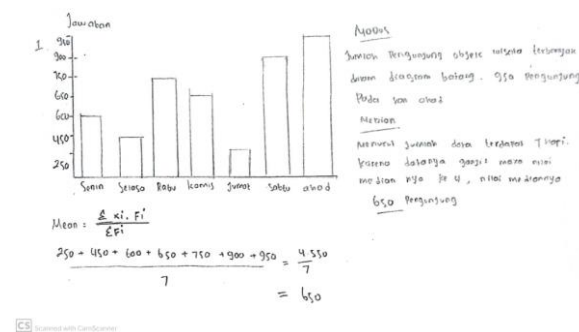 Jawaban
1.
950
900
750
650
600
450
250
Senin Selasa Rabu Kamis Jumat Sabtu ahad
Mean : Σ xi . Fi
ΣFi
250 + 450 + 600 + 650 + 750 + 900 + 950 = 4.550
7 7
= 650
Modus
Jumlah Pengunjung objek wisata terbanyak
dalam diagram batang . 950 Pengunjung
Pada ahad
Median
Menurut Jumlah data terdapat 7
karena datanya ganjil maka nilai
mediannya ke 4 , nilai mediannya
650 Pengunjung
CS Scanned with CamScanner